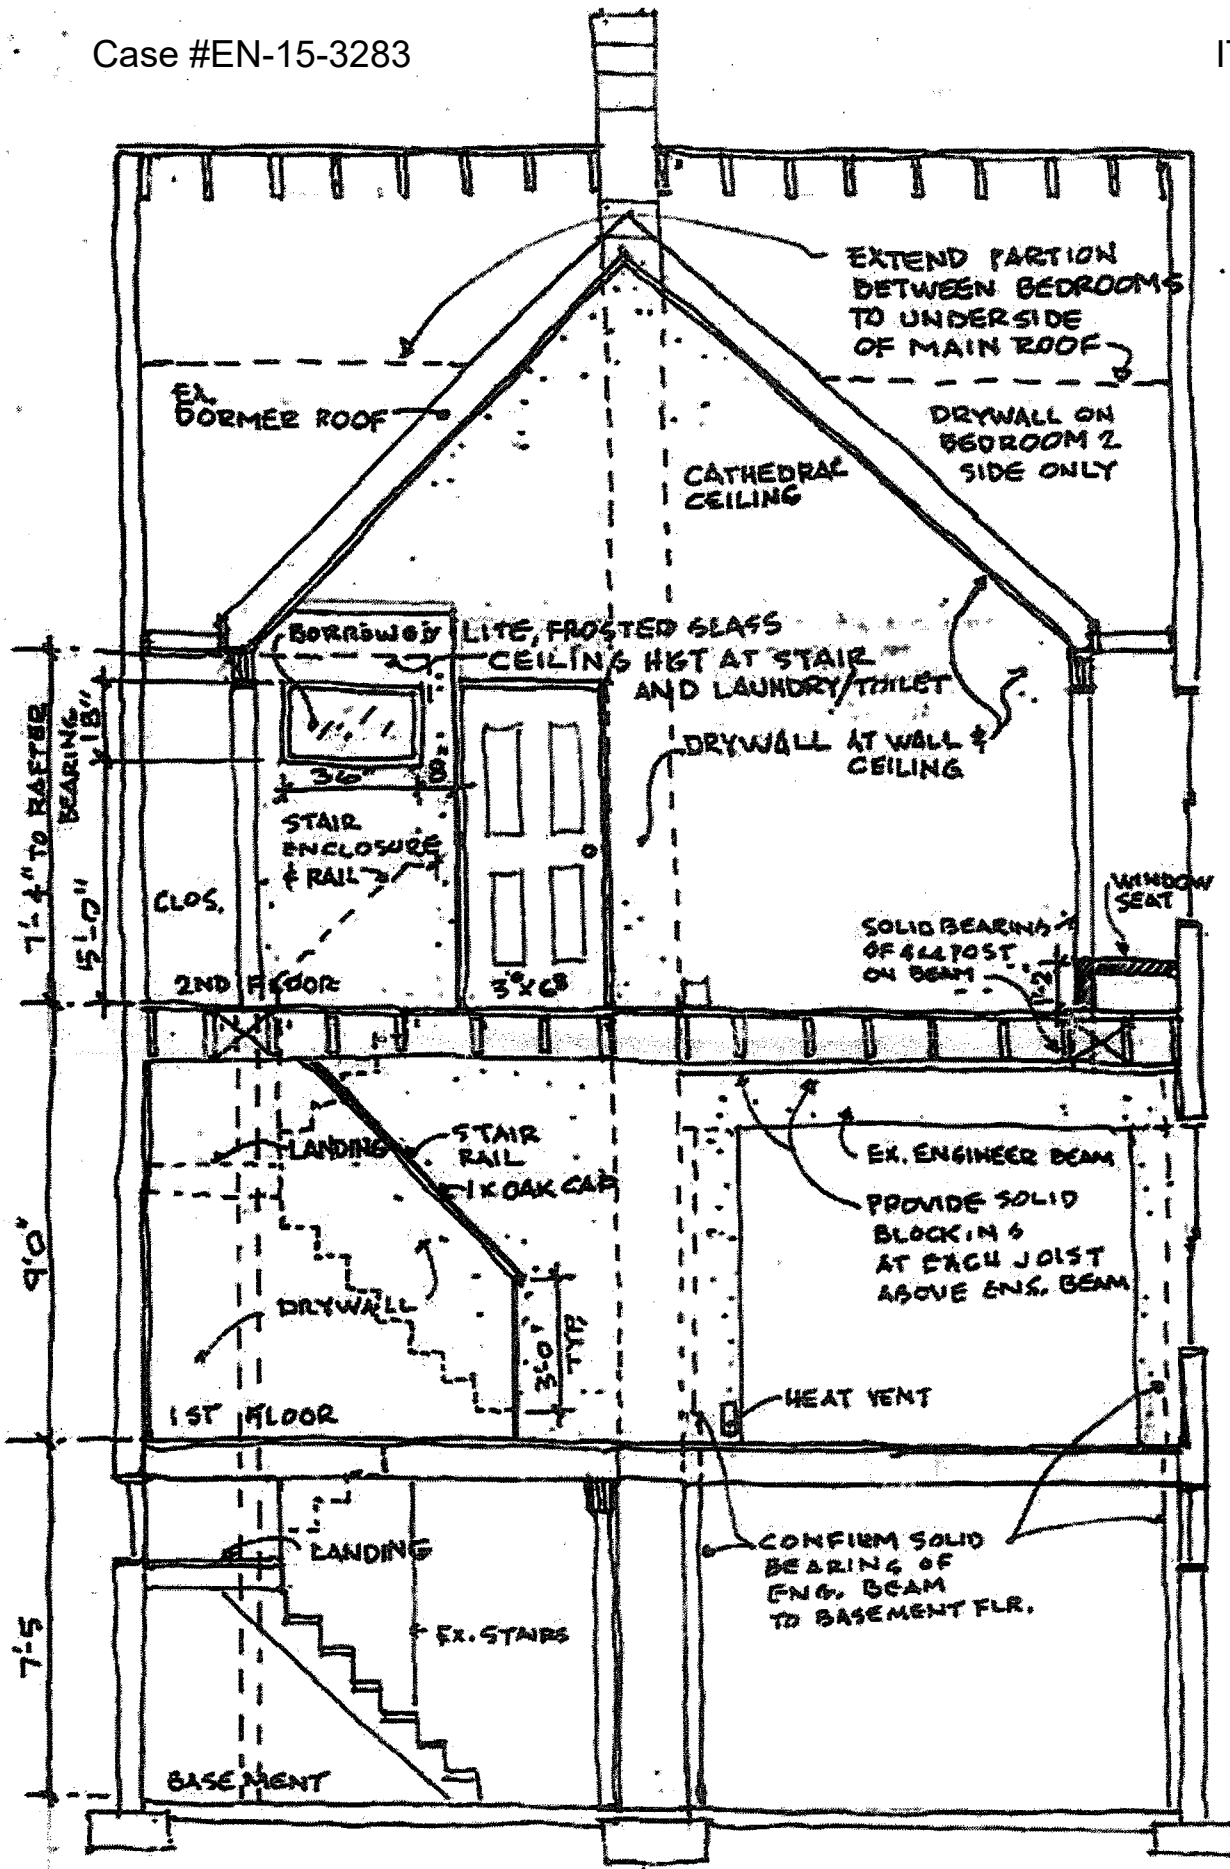 Case #EN-15-3283
EXTEND PARTION
BETWEEN BEDROOMS
TO UNDERSIDE
OF MAIN ROOF
EX.
DORMER ROOF
DRYWALL ON
BEDROOM 2
SIDE ONLY
CATHEDRAL
CEILING
BORROWED LITE, FROSTED GLASS
CEILING HGT AT STAIR
AND LAUNDRY/TOILET
7'-4" TO RAFTER
BEARING
18"
36
8"
DRYWALL AT WALL &
CEILING
STAIR
ENCLOSURE
& RAIL
CLOS.
5'-0"
WINDOW
SEAT
SOLID BEARING
OF POST
ON BEAM
1'-2
2ND FLOOR
3'0 X 68
LANDING
STAIR
RAIL
1X OAK CAP
EX. ENGINEER BEAM
PROVIDE SOLID
BLOCKING
AT EACH JOIST
ABOVE ENG. BEAM
9'0"
DRYWALL
3'-0"
TYP.
HEAT VENT
1ST FLOOR
LANDING
CONFIRM SOLID
BEARING OF
ENG. BEAM
TO BASEMENT FLR.
EX. STAIRS
7'-5
BASEMENT